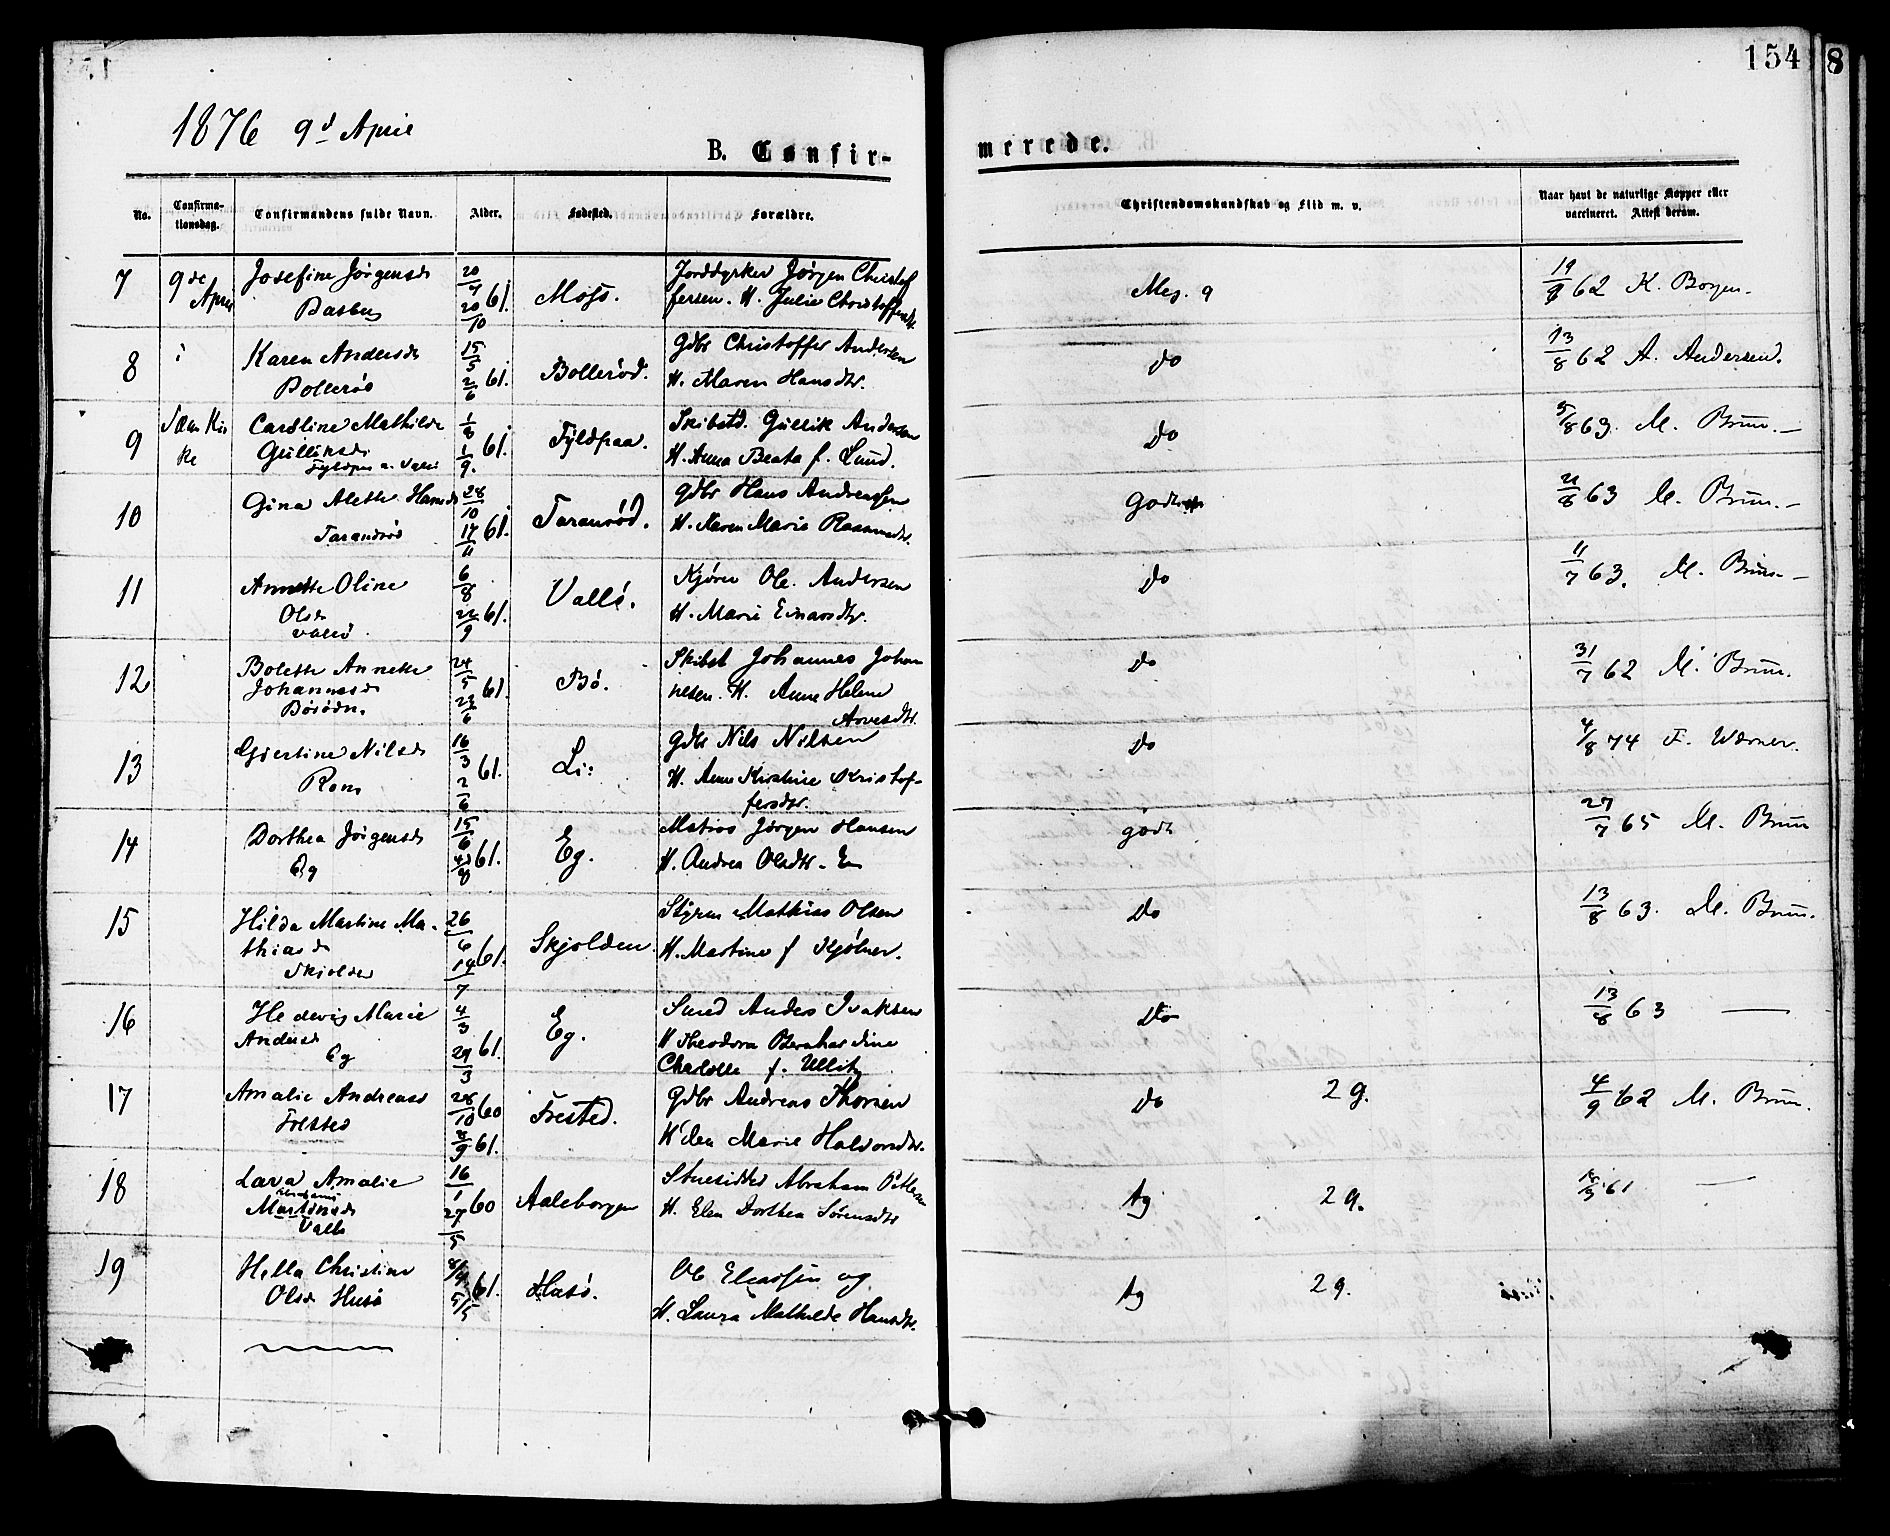 154
8
1876 9d April
B. Confir-
merede.
No.
Confirma-
tionsdag.
Confirmandens fulde Navn.
Alder.
Fødested.
Forældre.
Christendomskundskab og Flid m. v.
Naar havt de naturlige Kopper eller
vaccineret. Attest derom.
7
9de
April
Josefine Jørgensd
20
20/10 61.
Moss.
Jorddyrker Jørgen Christof
fersen. H. Julie
Meg. g
19/9 62 K. Boyen.
8
i
Karen Andersd
Bollerød
15/5
2/6 61.
Bollerød.
Gdbr Christoffer Andersen
H. Maren Hansdtr.
do
13/8 62 A. Andersen.
9
Caroline Mathilde
Gulliksd
1/8
1/9. 61.
Fyldpaa.
Skibstd. Gullik Andersen
H. Anna Beata f. Lund.
do
5/8 63. M. Bruun.
10
Gina Alette Hansd
28/10
17/11 61.
Gdbr Hans Andreassen
H. Karen Marie
Godt
21/8 63 M. Bruun.
11
Annette Oline
Olsd
Vallø
6/8
22/9 61.
Vallø.
Ole Andersen
H. Marie Einarsdtr.
do
11/7 63. M. Bruun
12
Bolette Annette
Johannesd
24/5
61.
Bø.
Skibst Johannes Johan
nesen. H. Anne Helene
do
31/7 62 M. Bruun.
13
Gjertine Nilsd
16/3
2/6 61.
Li:
Gdbr Nils Nilsen
H. Anne Kirstine Kristof-
fersdtr.
do
4/8 74 F. Werner.
14
Dorthea Jørgensd
Eg
15/6
61.
Eg.
Matros Jørgen Hansen
H. Andrea Olsdtr.
godt
27/7 65 M. Bruun
15
Hilda Martine Ma-
thiasd
Skjolden
26/6
14/7 61.
Skjolden.
Styrm Mathias Olsen
H. Martine f Kjølner.
Do
13/8 63. M. Bruun.
16
Hedevig Marie
Andersd
Eg
4/3
29/3 61.
Eg.
Smed Anders Isaksen
H Theodora Bernhardine
Charlotte f. Ullitz
Do
13/8 63
17
Amalie Andreasd
Frested
28/10 60
61.
Frested.
Gdbr Andreas Thorsen
Marie Halvorsdtr.
Do
2 g.
4/9 62 M. Bruun.
18
Lava Amalie
Vallø
16/1
27/5 60
Aaleborgen
Abraham
H. Elen Dorthea Sørensdtr
tg
2 g.
61
19
Hella Christine
Olsd Husø
61.
Husø.
Ole og
H. Laura Mathilde Hansdtr.
tg
2 g.